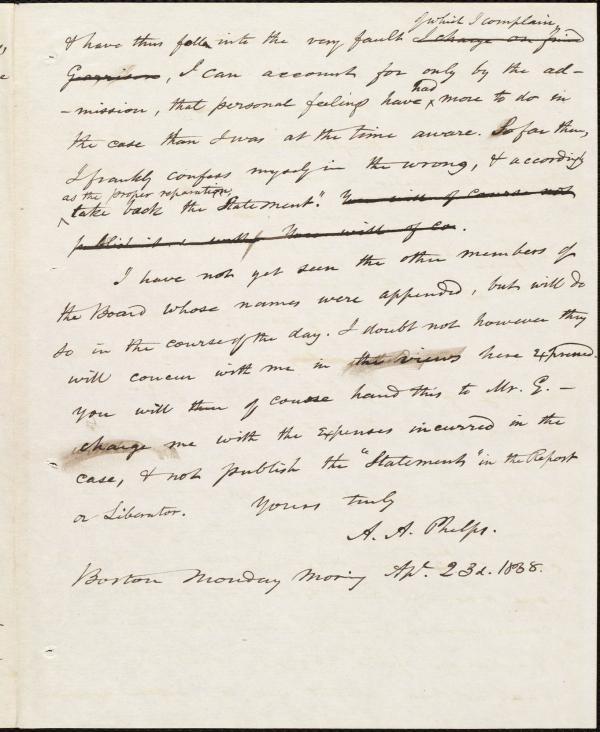 of which I complain,
& have thus fallen into the very fault I charge on friend
Garrison, I can account for only by the ad-
had
-mission, that personal feelings have more to do in
the case than I was at the time aware. So far then,
I frankly confess myself in the wrong, & accordingly
as the proper reparation,
take back the Statement." You will of course not
publish it, & with You will of co.
I have not yet seen the other members of
the Board whose names were appended, but will do
so in the course of the day. I doubt not however they
will concur with me in the views here expressed.
You will then of course hand this to Mr. G. –
charge me with the expenses incurred in the
case, & not publish the "Statements" in the Report
or Liberator. Yours truly
A. A. Phelps.
Boston Monday Morning Apl. 23d. 1838.